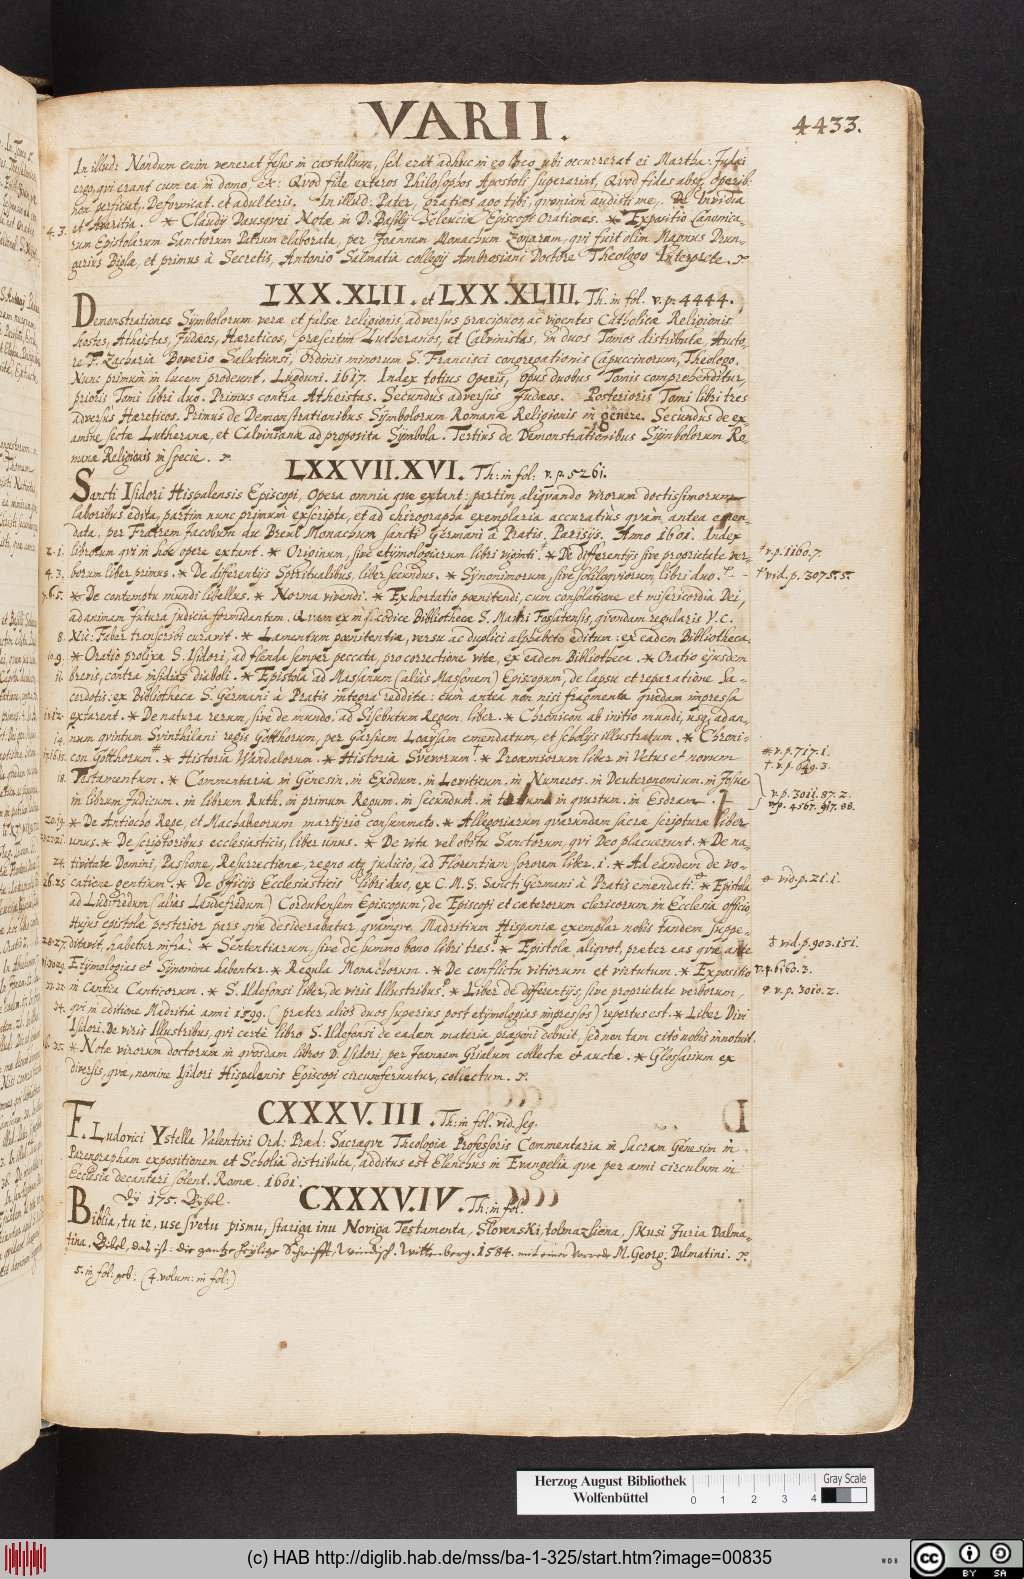 VARII.
4433.
In illud: Nondum enim venerat Jesus in castellum, sed erat adhuc in eo loco, ubi occurrerat ei Martha: Judæi
ergo, qui erant cum ea in domo, &c: Qvod fide exteros Philosophos Apostoli superarint, Qvod fides absq; operib:
non perficiat, Deformitat. et adulteris. In illud: Pater, gratias ago tibi, qvoniam audisti me. De Invidia
4. 3. et Avaritia. * Claudij Dausqvei Notæ in D. Basilij Seleuciæ Episcopi Orationes. * Expositio Canonica-
rum Epistolarum Sanctorum Patrum elaborata, per Joannem Monachum Zonaram, qvi fuit olim Magnus Drun-
garius Biglæ, et primus à Secretis, Antonio Salmatia collegij Ambrosiani Doctore Theologo Interprete.
LXX.XLII. et LXX.XLIII. Th. in fol. v. p. 4444.
Demonstrationes Symbolorum veræ et falsæ religionis, adversus præcipuos, ac vigentes Catholicæ Religionis
hostes, Atheistas, Judæos, Hæreticos, præsertim Lutheranos, et Calvinistas, in duos Tomos distributæ, Aucto-
re F. Zacharia Boverio Salutiensi, Ordinis minorum S. Francisci congregationis Capuccinorum, Theologo.
Nunc primùm in lucem prodeunt. Lugduni. 1617. Index totius Operis, opus duobus Tomis comprehenditur,
prioris Tomi libri duo. Primus contra Atheistas. Secundus adversus Judæos. Posterioris Tomi libri tres
adversus Hæreticos. Primus de Demonstrationibus Symbolorum Romanæ Religionis in genere. Secundus de ex-
amine sectæ Lutheranæ, et Calvinianæ ad proposita Symbola. Tertius de Demonstrationibus Symbolorum Ro-
manæ Religionis in specie.
LXXVII.XVI. Th: in fol: v. p. 5261.
Sancti Isidori Hispalensis Episcopi, Opera omnia qvæ extant: partim aliqvando virorum doctissimorum
laboribus edita, partim nunc primùm exscripta, et ad chirographa exemplaria accuratiùs qvàm antea emen-
data, per Fratrem Jacobum du Breul Monachum sancti Germani à Pratis. Parisijs. Anno 1601. Index
2. 1. librorum qvi in hoc opere extant. * Originum, sive etijmologiarum libri viginti. * De differentijs sive proprietate ver-
† v. p. 1160. 7.
4. 3. borum liber primus. * De differentijs Spiritualibus, liber secundus. * Synonimorum, sive soliloqviorum, libri duo.
vid. p. 3075. 5.
7. 6. 5. * De contemptu mundi libellus. * Norma vivendi. * Exhortatio pœnitendi, cum consolatione et misericordia Dei,
ad animam futura judicia formidantem. Qvam ex m. s. codice Bibliothecæ S. Mauri Fossatensis, qvondam regularis V. C.
8. Nic: Faber transcribi curavit. * Lamentum pœnitentiæ, versu ac duplici alphabeto editum: ex eadem Bibliotheca.
10. 9. * Oratio prolixa S. Isidori, ad flenda semper peccata, pro correctione vitæ, ex eadem Bibliotheca. * Oratio ejusdem
11. brevis, contra insidias diaboli. * Epistola ad Massanam (aliàs Massonem) Episcopum, de lapsu et reparatione sa-
cerdotis: ex Bibliotheca S. Germani à Pratis integrè reddita: cum antea non nisi fragmenta qvædam impressa
13. 12. extarent. * De natura rerum, sive de mundo: ad Sisebutum Regem liber. * Chronicon ab initio mundi, usq; ad an-
14. num qvintum Svinthilani regis Gotthorum, per Garsiam Loaysam emendatum, et scholijs illustratum. * Chroni-
17. 16. 15. con Gotthorum. * Historia Wandalorum. * Historia Svevorum. * Proæmiorum liber in Vetus et novum
* v. p. 717. 1.
† v. p. 649. 3.
18. Testamentum. * Commentaria in Genesin. in Exodum. in Leviticum. in Numeros. in Deuteronomium. in Josue
in librum Judicum. in librum Ruth. in primum Regum. in secundum. in tertium. in qvartum. in Esdram.
v. p. 3011. 87. 2.
v. p. 4567. 917. 88.
20. 19. * De Antiocho Rege, et Machabæorum martyrio consummato. * Allegoriarum qvarundam sacræ scripturæ liber
unus. * De scriptoribus ecclesiasticis, liber unus. * De vita vel obitu Sanctorum, qvi Deo placuerunt. * De na-
24. tivitate Domini, Passione, Resurrectione, regno atq; judicio, ad Florentiam sororem liber. 1. * Ad eandem de vo-
26. 25 catione gentium. * De officijs Ecclesiasticis libri duo, ex C. M. S. Sancti Germani à Pratis emendati. * Epistola
vid. p. 21. 1.
ad Ludifredum (aliàs Laudefredum) Cordubensem Episcopum, de Episcopi et cæterorum clericorum in Ecclesia officio
Hujus epistolæ posterior pars qvæ desiderabatur qvamqve Madritium Hispaniæ exemplar nobis tandem suppe-
28. 27. ditavit, habetur infra. * Sententiarum, sive de summo bono libri tres. * Epistolæ aliqvot, præter eas qvæ ante
‡ vid. p. 903. 151.
31. 30. 29. Etymologias et Synonima habentur. * Regula Monachorum. * De conflictu vitiorum et virtutum. * Expositio
v. p. 6163. 3.
33. 32. in Cantica Canticorum. * S. Ildefonsi liber, de viris Illustribus. * Liber de differentijs, sive proprietate verborum,
v. p. 3010. 2.
34. qvi in editione Madritia anni 1599. (præter alios duos superius post etijmologias impressos) repertus est. * Liber Divi
Isidori. De viris Illustribus, qvi certè libro S. Ildefonsi de eadem materia præponi debuit, sed non tam citò nobis innotuit.
36. 35. * Notæ virorum doctorum in qvosdam libros D. Isidori, per Joannem Grialum collectæ et auctæ. * Glossarium ex
diversis, qvæ, nomine Isidori Hispalensis Episcopi circumferuntur, collectum.
CXXXV.III. Th: in fol. vid. seg.
F. Ludovici Ystella Valentini Ord: Præd: Sacræqve Theologiæ Professoris Commentaria in sacram Genesim in
Parengrapham expositionem et Scholia distributa, additus est Elenchus in Evangelia qvæ per anni circulum in
Ecclesia decantari solent. Romæ. 1601.
Dÿ 175. Bybel.
CXXXV.IV. Th: in fol.
Biblia, tu ie, use svetu pismu, stariga inu Noviga Testamenta, Slovenski, tolmazhena, skusi Juria Dalma-
tina. Bibel, das ist: die gantze heylige Schrifft, Windisch. Wittenberg. 1584. mit einer Vorrede M. Georg: Dalmatini.
5. in fol: geb: (4. volum: in fol:)
Herzog August Bibliothek
Wolfenbüttel
0 1 2 3 4
Gray Scale
(c) HAB http://diglib.hab.de/mss/ba-1-325/start.htm?image=00835
WDB
cc BY SA